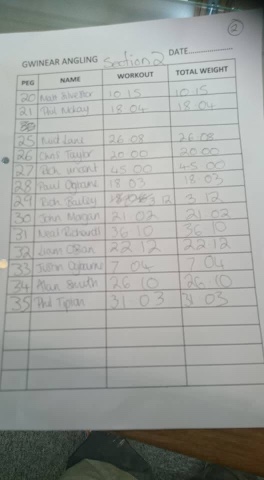 2
GWINEAR ANGLING Section 2 DATE
PEG NAME WORKOUT TOTAL WEIGHT
20 10 15 10 15
21 Phil 18 04 18 04
25 Lane 26 08 26 08
26 Chris Taylor 20 00 20 00
27 Rich 45 00 45 00
28 Paul Osborne 18 03 18 03
29 Rich Bailey 3 12 3 12
30 John Morgan 21 02 21 02
31 Neal Richards 36 10 36 10
32 Liam 22 12 22 12
33 Justin Osborne 7 04 7 04
34 Alan Smith 26 10 26 10
35 Phil Tipton 31 03 31 03